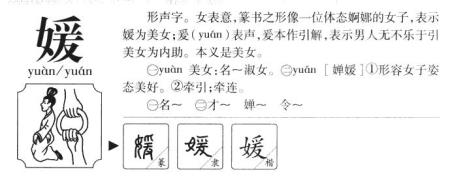 媛
yuàn/yuán
形声字。女表意,篆书之形像一位体态婀娜的女子,表示
媛为美女;爰(yuán)表声,爰本作引解,表示男人无不乐于引
美女为内助。本义是美女。
㊀yuàn 美女:名~淑女。㊁yuán [婵媛]①形容女子姿
态美好。②牵引;牵连。
㊀名~ ㊁才~ 婵~ 令~
媛 篆 媛 隶 媛 楷